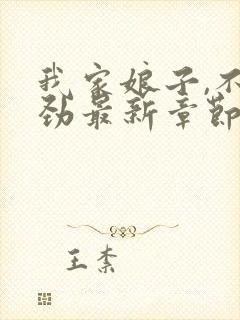 我家娘子,不
劲最新章节
王柰